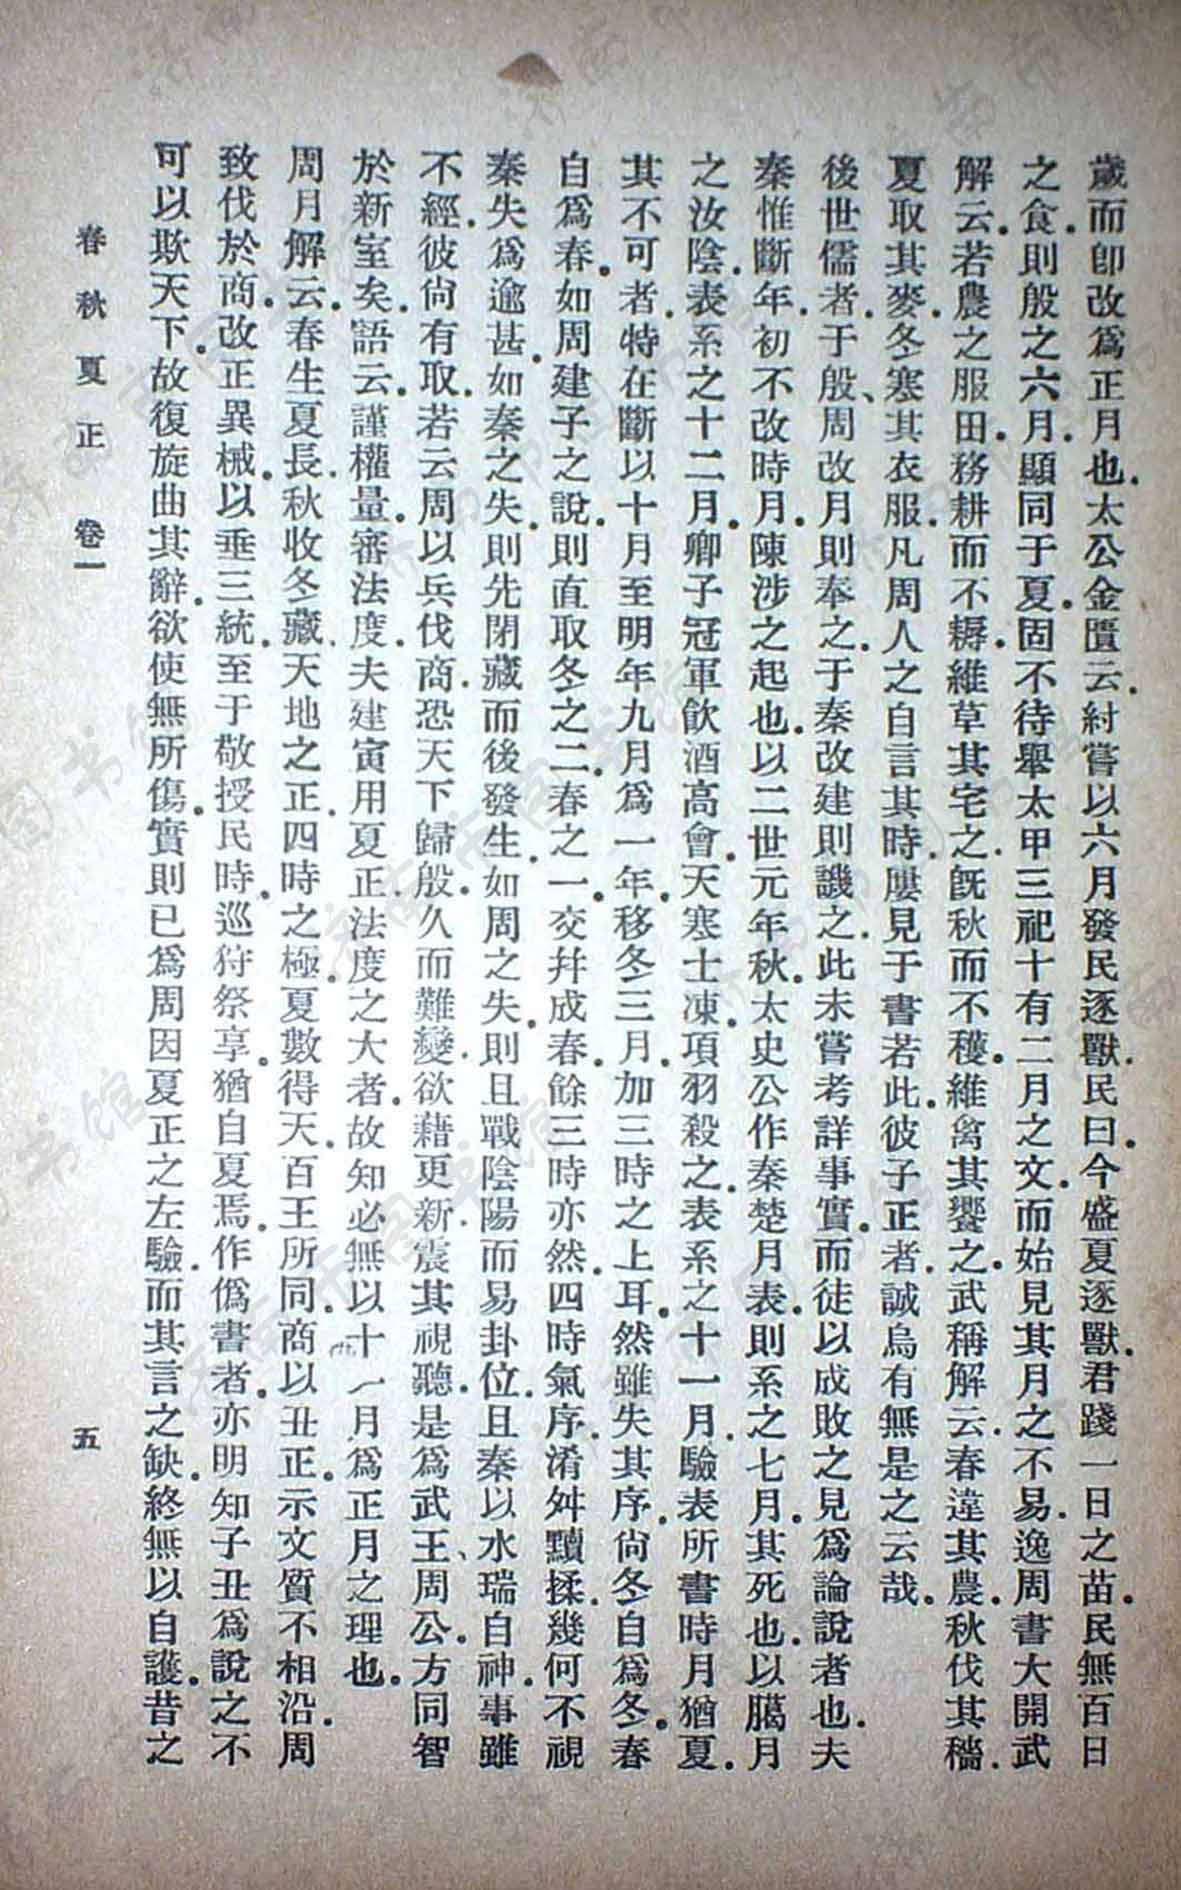 歲而卽改爲正月也.太公金匱云.紂嘗以六月發民逐獸.民曰.今盛夏逐獸.君踐一日之苗.民無百日
之食.則殷之六月.顯同于夏.固不待舉太甲三祀十有二月之文.而始見其月之不易.逸周書大開武
解云.若農之服田.務耕而不耨.維草其宅之.旣秋而不穫.維禽其饗之.武稱解云.春違其農.秋伐其穡.
夏取其麥.冬寒其衣服.凡周人之自言其時.屢見于書若此.彼子正者.誠烏有無是之云哉.
後世儒者.于殷、周改月則奉之.于秦改建則譏之.此未嘗考詳事實.而徒以成敗之見爲論說者也.夫
秦惟斷年.初不改時月.陳涉之起也.以二世元年秋.太史公作秦楚月表.則系之七月.其死也.以臘月
之汝陰.表系之十二月.卿子冠軍飲酒高會.天寒士凍.項羽殺之.表系之十一月.驗表所書時月猶夏.
其不可者.特在斷以十月至明年九月爲一年.移冬三月.加三時之上耳.然雖失其序.尙冬自爲冬.春
自爲春.如周建子之說.則直取冬之二.春之一.交幷成春.餘三時亦然.四時氣序.淆舛黷揉.幾何不視
秦失爲逾甚.如秦之失.則先閉藏而後發生.如周之失.則且戰陰陽而易卦位.且秦以水瑞自神.事雖
不經.彼尙有取.若云周以兵伐商.恐天下歸殷久而難變.欲藉更新.震其視聽.是爲武王、周公.方同智
於新室矣.語云.謹權量.審法度.夫建寅用夏正.法度之大者.故知必無以十一月爲正月之理也.
周月解云.春生夏長.秋收冬藏.天地之正.四時之極.夏數得天.百王所同.商以丑正.示文質不相沿.周
致伐於商.改正異械.以垂三統.至于敬授民時.巡狩祭享.猶自夏焉.作僞書者.亦明知子丑爲說之不
可以欺天下.故復旋曲其辭.欲使無所傷.實則已爲周因夏正之左驗.而其言之缺.終無以自護.昔之
春秋夏正 卷一
五